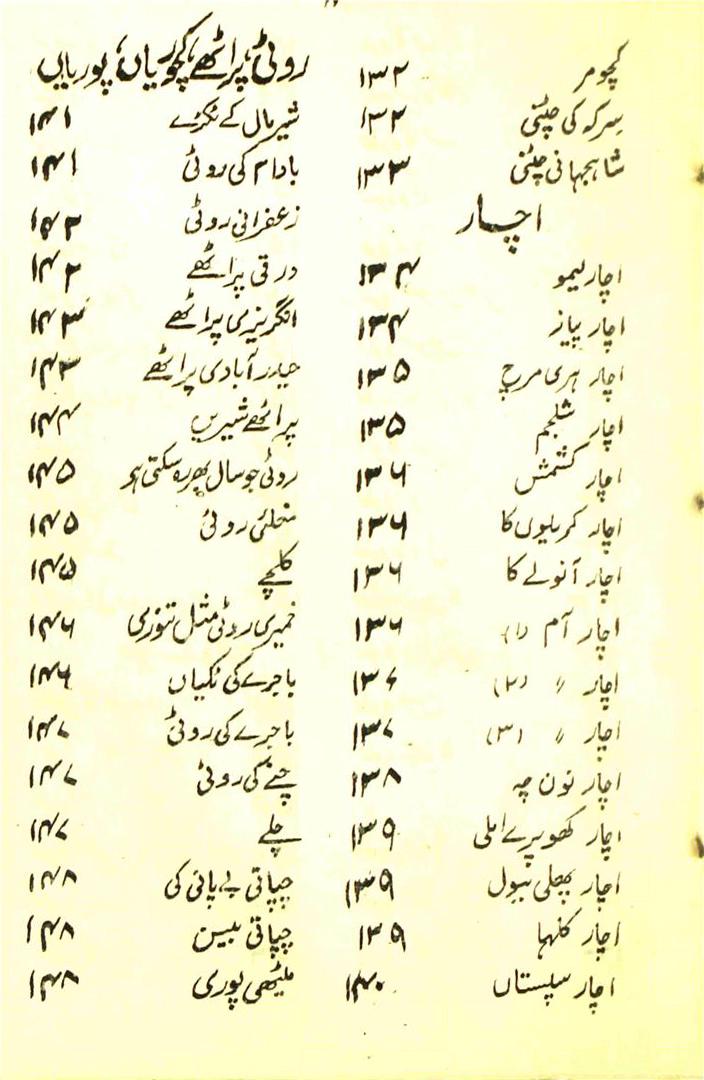 کچومر ۱۳۲
سرکہ کی چٹنی ۱۳۲
شاہجہانی چٹنی ۱۳۳
اچار
اچار لیمو ۱۳۴
اچار پیاز ۱۳۴
اچار ہری مرچ ۱۳۵
اچار شلجم ۱۳۵
اچار کشمش ۱۳۶
اچار کریلوں کا ۱۳۶
اچار آنولے کا ۱۳۶
اچار آم (۱) ۱۳۶
اچار 〃 (۲) ۱۳۷
اچار 〃 (۳) ۱۳۷
اچار نون چہ ۱۳۸
اچار کھوپرے املی ۱۳۹
اچار پھلی ببول ۱۳۹
اچار کلہا ۱۳۹
اچار سپستاں ۱۴۰
روٹی، پراٹھے، کچوریاں، پوریاں
شیرمال کے ٹکڑے ۱۴۱
بادام کی روٹی ۱۴۱
زعفرانی روٹی ۱۴۲
ورقی پراٹھے ۱۴۲
انگریزی پراٹھے ۱۴۳
حیدرآبادی پراٹھے ۱۴۳
پراٹھے شیریں ۱۴۴
روٹی جو سال بھر رہ سکتی ہے ۱۴۵
روٹی ۱۴۵
کلچے ۱۴۵
خمیری روٹی مثل تنوری ۱۴۶
باجرے کی ٹکیاں ۱۴۶
باجرے کی روٹی ۱۴۷
چنے کی روٹی ۱۴۷
چلے ۱۴۷
چپاتی بے پانی کی ۱۴۸
چپاتی بیسن ۱۴۸
میٹھی پوری ۱۴۸